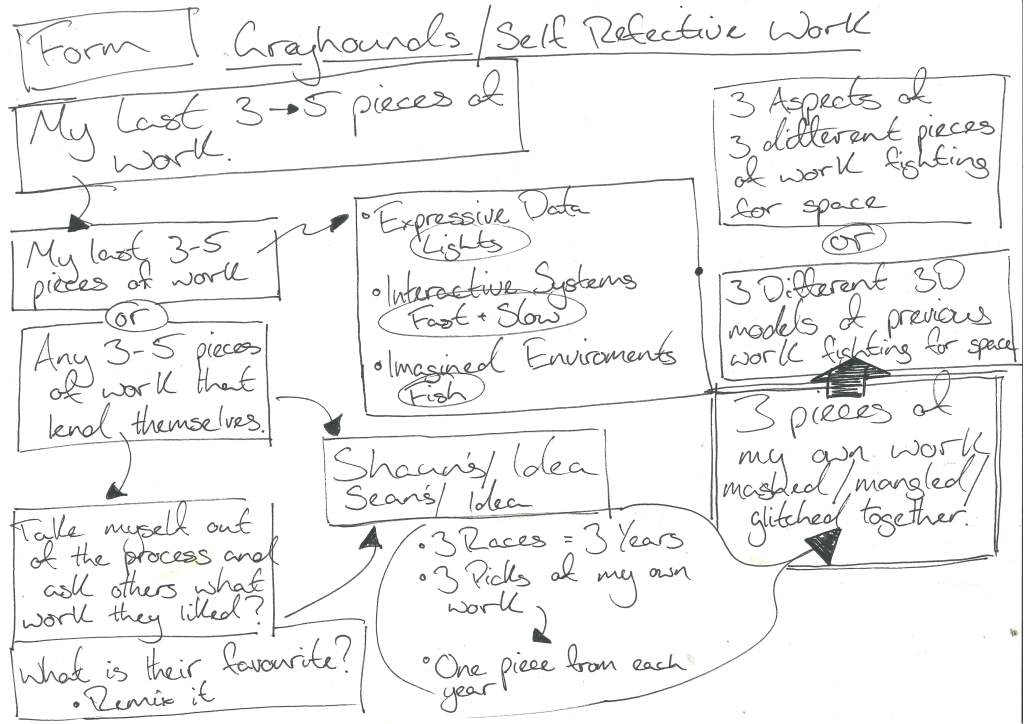 Form
Greyhounds/Self Refective Work
My Last 3→5 pieces of
work.
My last 3-5
pieces of work
or
Any 3-5 pieces
of work that
lend themselves.
Take myself out
of the process and
ask others what
work they liked?
What is their favourite?
• Remix it
• Expressive Data
Lights
• Interactive Systems
Fast + Slow
• Imagined Enviroments
Fish
Shaun's/ Idea
Sean's/ Idea
• 3 Races = 3 Years
• 3 Picks of my own
work
• One piece from each
year
3 Aspects of
3 different pieces
of work fighting
for space
or
3 Different 3D
models of previous
work fighting for space
3 pieces of
my own work
mashed/mangled/
glitched together.